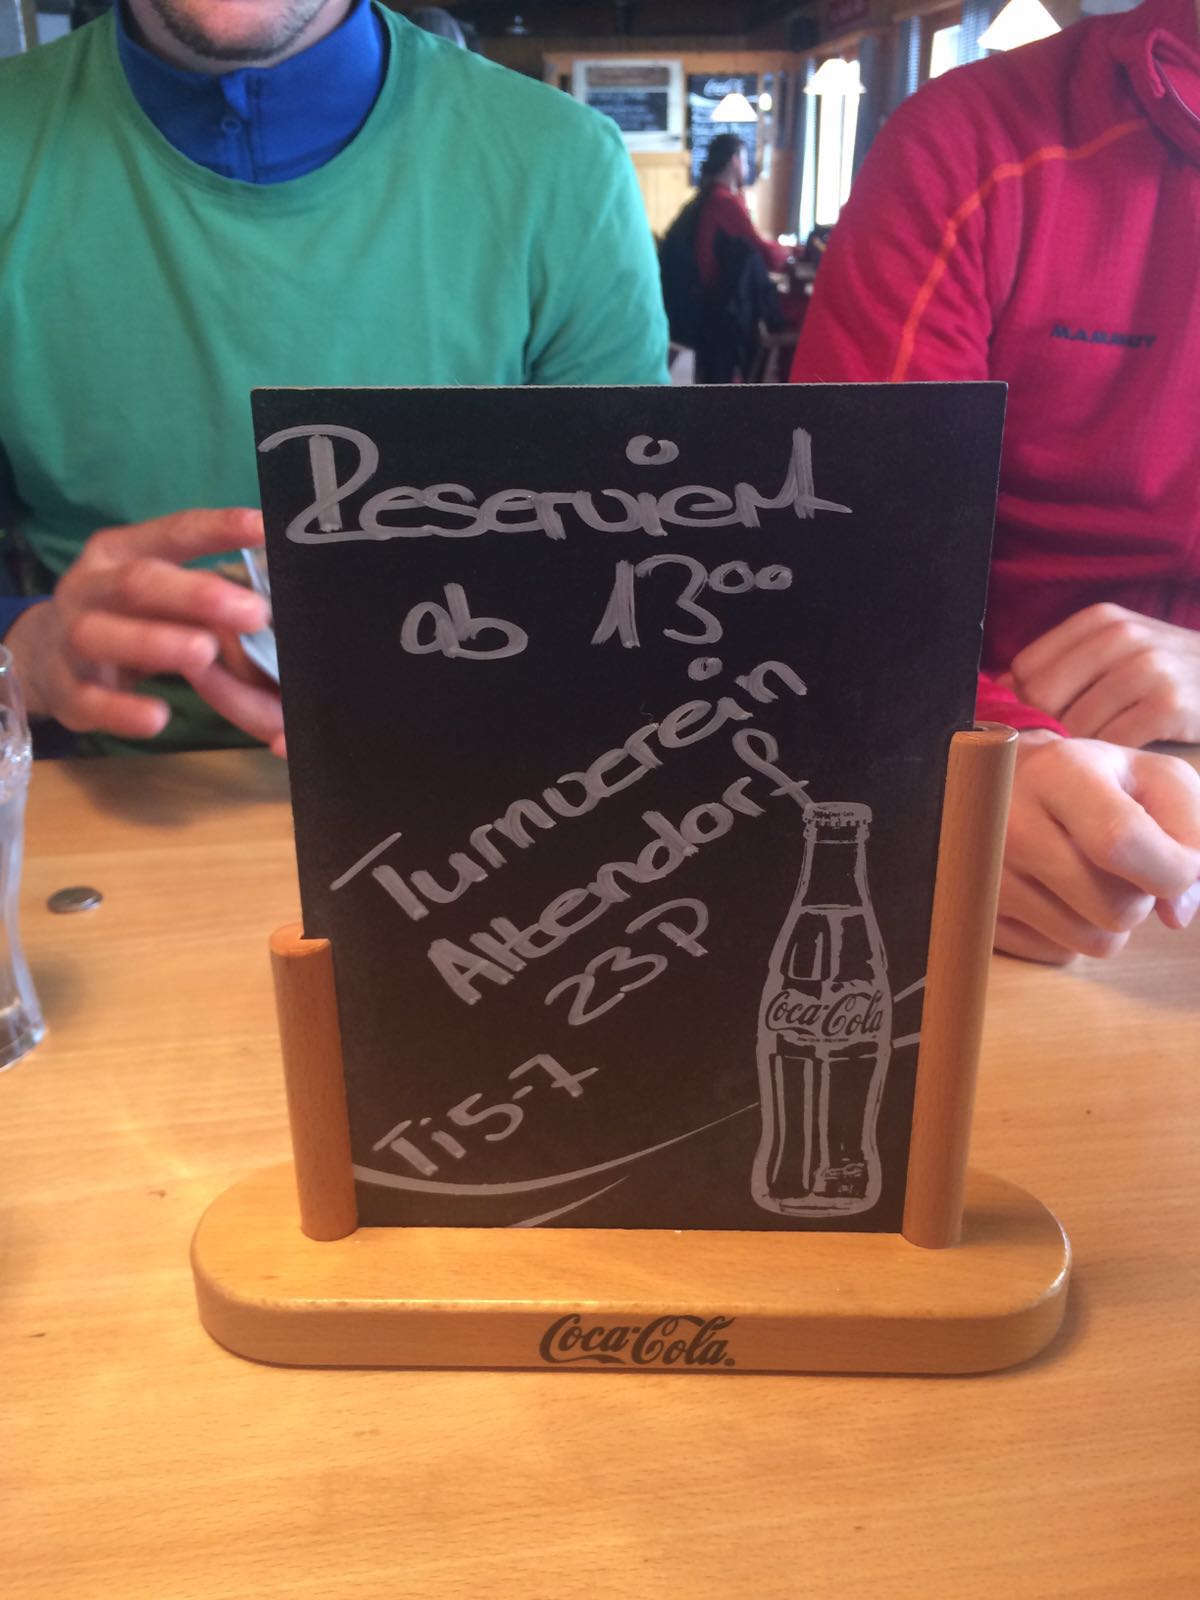 MAMMUT
Reserviert
ab 13⁰⁰
Turnverein
Altendorf
23 P
Ti 5-7
Coca-Cola
Coca-Cola